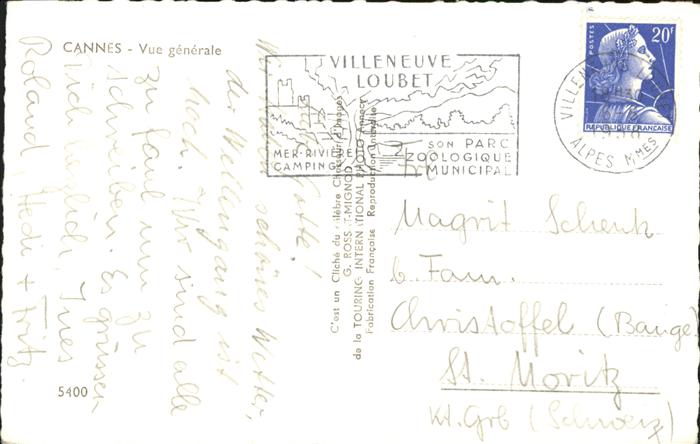 CANNES - Vue générale
VILLENEUVE
LOUBET
MER-RIVIÈRE
CAMPING
SON PARC
ZOOLOGIQUE
MUNICIPAL
POSTES
20F
REPUBLIQUE FRANÇAISE
ALPES MMES
C'est un Cliché du célèbre Chasseur d'Images
G. ROSS T-MIGNOD
de la TOURING INTERNATIONAL PHOTO Annecy
Fabrication Française Reproduction Interdite
Lotte!
schönes Wetter,
der Wellengang ist
hoch. Wir sind alle
zu faul um zu
schreiben. Es grüssen
Dich Ines
Roland, Hedi + Fritz.
Magrit Schenk
b. Fam.
Christoffel (Bauge
St. Moritz
Kt. Grb (Schweiz)
5400